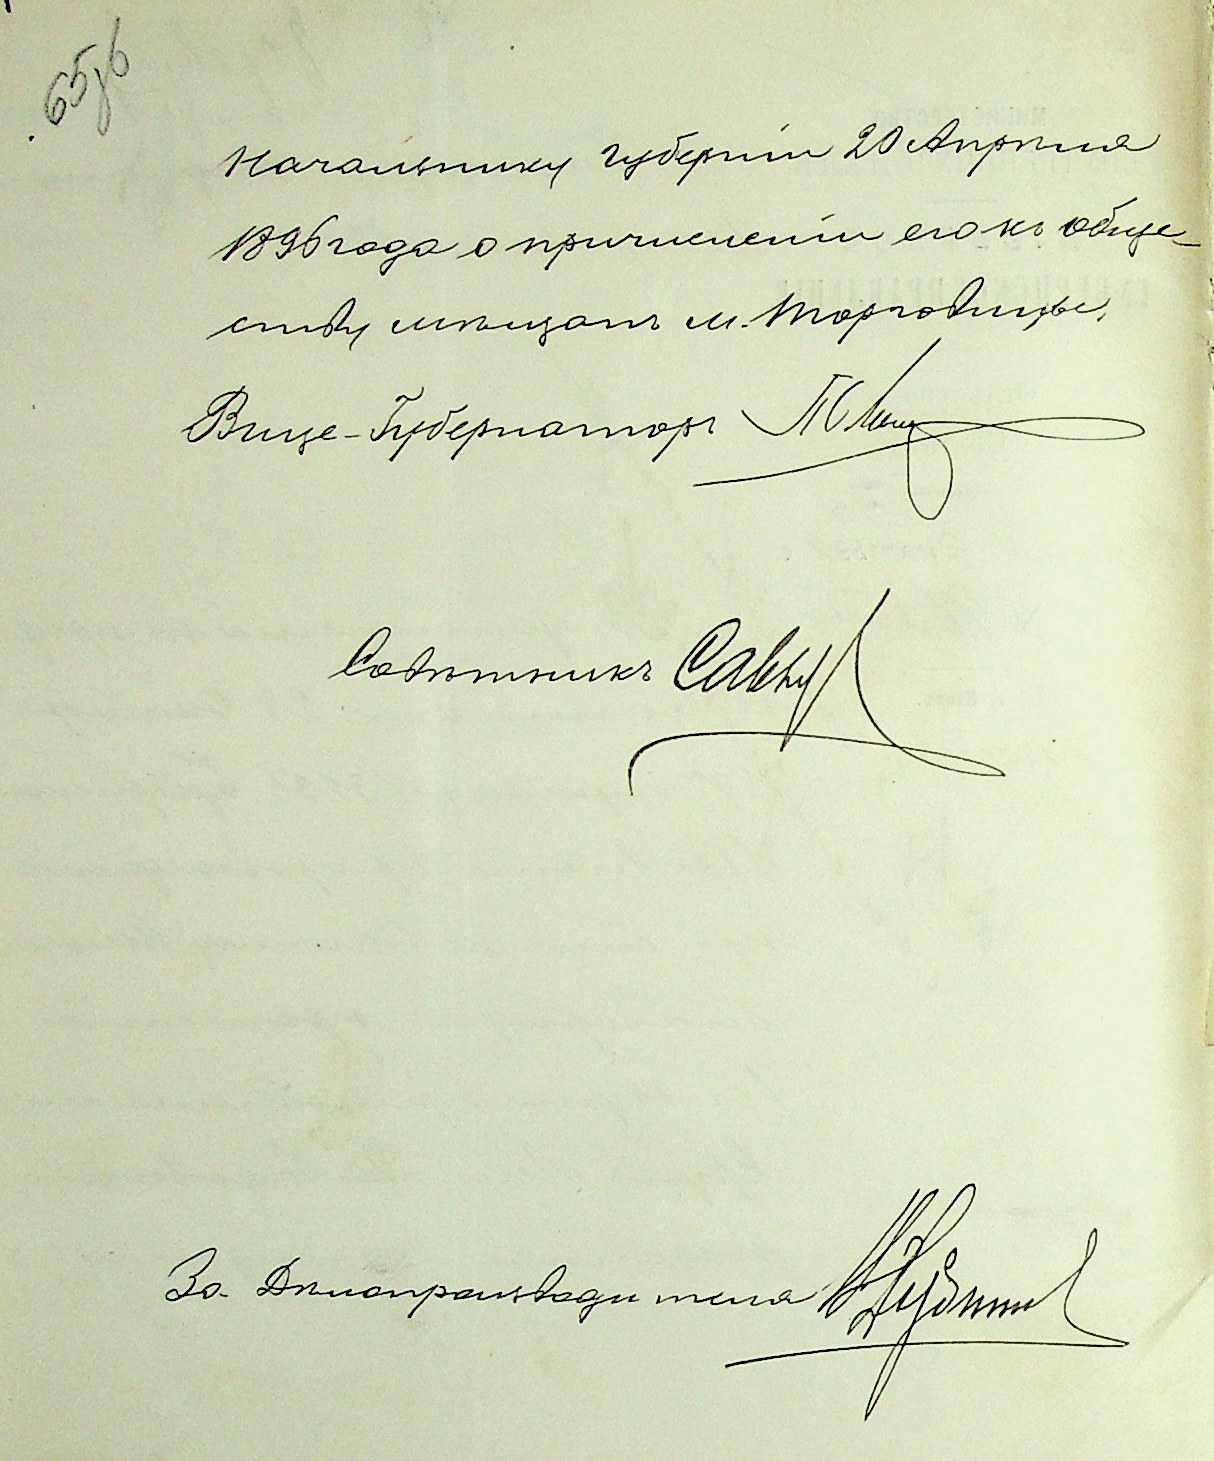 65об
Начальнику губерніи 20 Апрѣля
1896 года о причисленіи его къ обще-
ству мѣщанъ м. Торговицы.
Вице-Губернаторъ
Совѣтникъ
За Дѣлопроизводителя